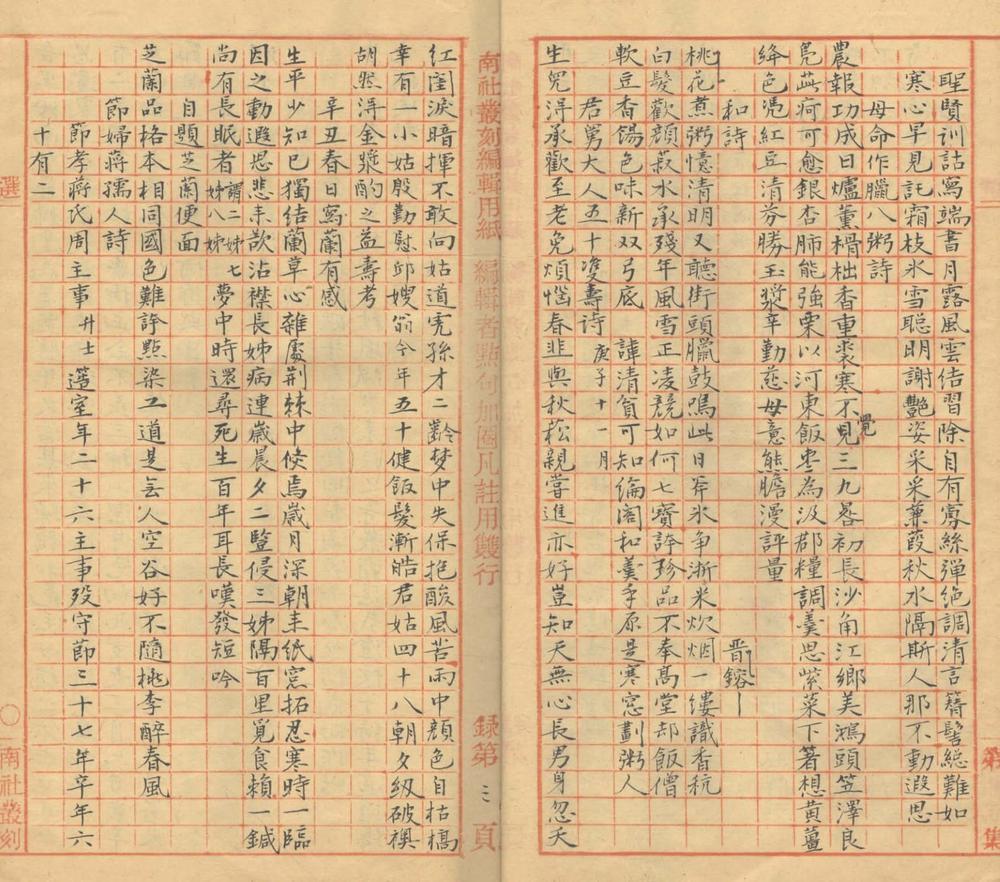 聖賢訓詁寫端書月露風雲結習除自有寡絲彈絕調清言簪髻總難如
寒心早見託霜枝氷雪聰明謝艷姿采采蒹葭秋水隔斯人那不動遐思
母命作臘八粥詩
農報功成日爐薰榾柮香重裘寒不見三九晷初長沙角江鄉美鴻頭笠澤良
覺
凫茈疴可愈銀杏肺能強栗以河東飯枣為汲郡糧調羹思紫菜下箸想黃薑
絳色憑紅豆清芬勝玉漿辛勤慈母意熊膽漫評量
和詩
晋鎔
桃花煮粥憶清明又聽街頭臘鼓鳴此日斧氷争淅米炊烟一縷識香秔
白髮歡顏菽水承殘年風雪正凌競如何七寶誇珍品不奉高堂却飯僧
軟豆香餳色味新双弓底諱清貧可知綸阁和羹手原是寒窓劃粥人
君舅大人五十雙壽詩 庚子十一月
生兒淂承歡至老免煩惱春韭與秋菘親嘗進亦好豈知天無心長男身忽夭
南社叢刻編輯用紙 編輯者點句加圈凡註用雙行 錄第三頁
紅閨淚暗揮不敢向姑道宪孫才二齡梦中失保抱酸風苦雨中顏色自枯槁
幸有一小姑殷勤慰邱嫂翁今年五十健飯髮漸皓君姑四十八朝夕級破襖
胡然淂金漿酌之益壽考
辛丑春日寫蘭有感
生平少知己獨結蘭草心雜處荆棘中倏焉歲月深朝耒紙窓拓忍寒時一臨
因之動遐思悲耒歆沾襟長姊病連歲晨夕二豎侵三姊隔百里覓食賴一鍼
尚有長眠者謂二姊七姊八姊夢中時還尋死生百年耳長嘆發短吟
自題芝蘭便面
芝蘭品格本相同國色難誇點染工道是無人空谷好不隨桃李醉春風
節婦蔣孺人詩
節孝蔣氏周主事廾七簉室年二十六主事殁守節三十七年辛年六
十有二
選
南社叢刻
第
集